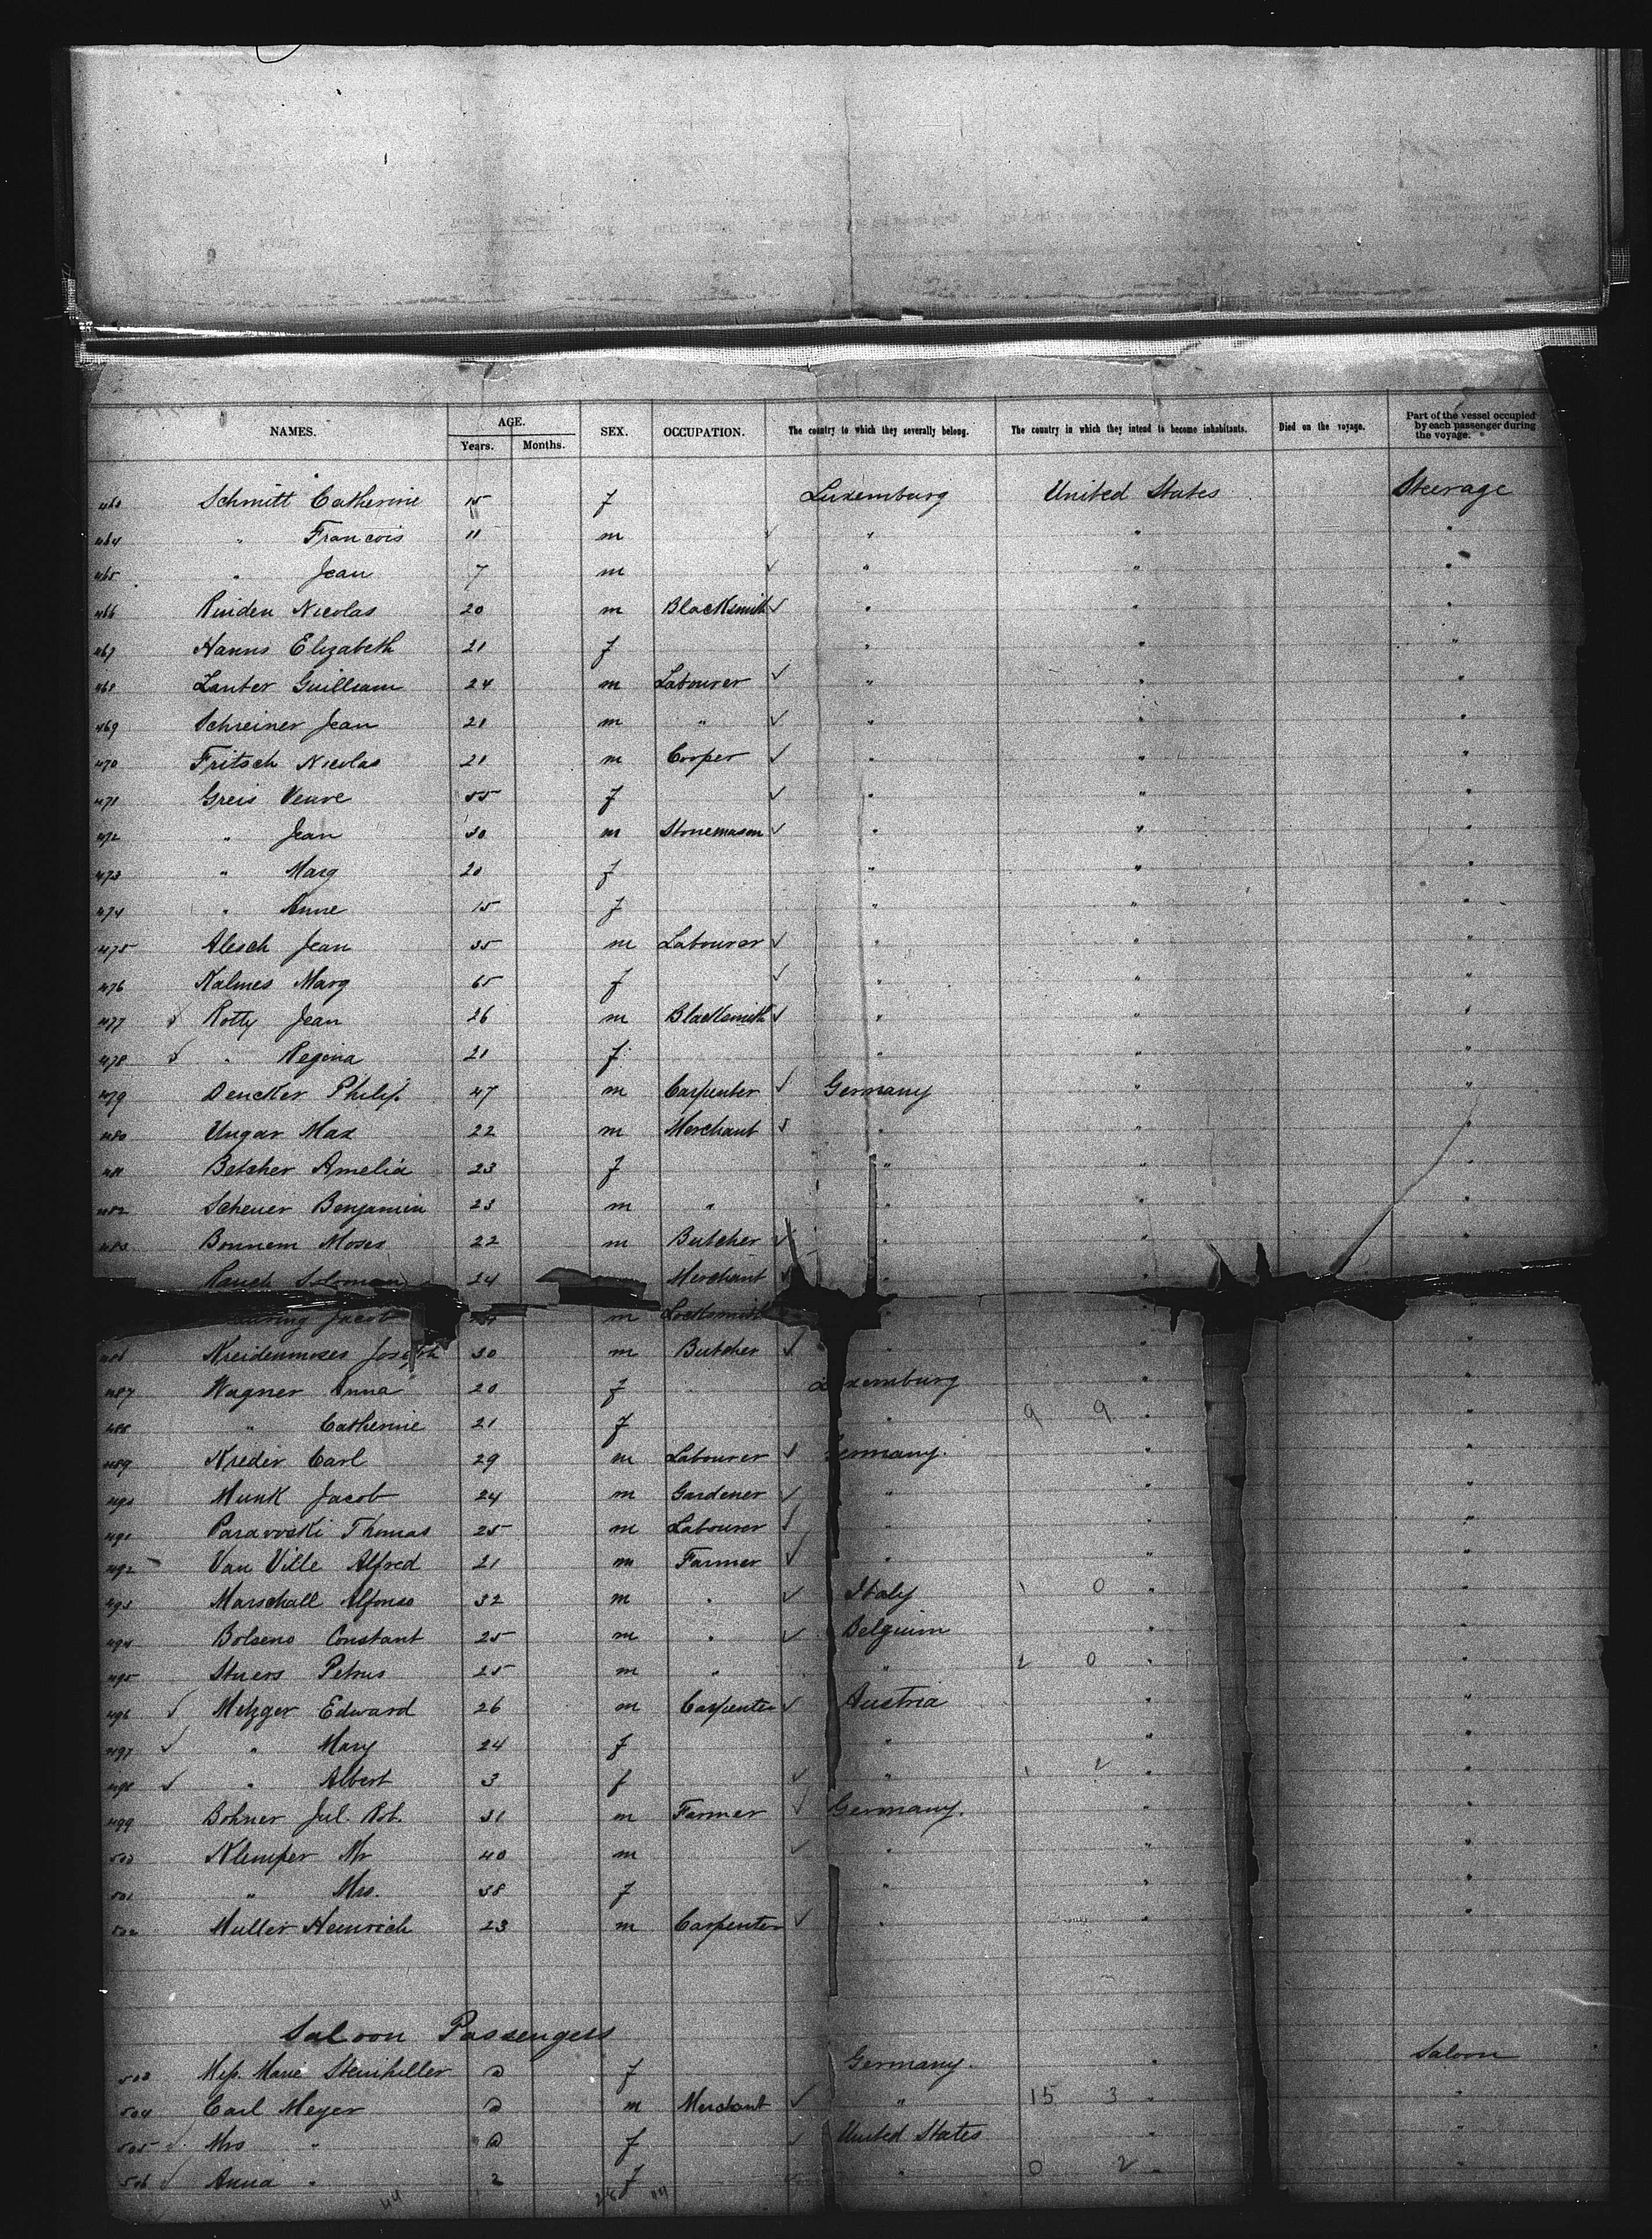 NAMES. AGE. Years. Months. SEX. OCCUPATION. The country to which they severally belong. The country in which they intend to become inhabitants. Died on the voyage. Part of the vessel occupied by each passenger during the voyage.
463 Schmitt Catherine 15 f Luxemburg United States Steerage
464 " Francois 11 m ✓ " " "
465 " Jean 7 m ✓ " " "
466 Rinden Nicolas 20 m Blacksmith ✓ " " "
467 Hanns Elizabeth 21 f " " "
468 Lanter Guilliam 24 m Labourer ✓ " " "
469 Schreiner Jean 21 m " ✓ " " "
470 Fritsch Nicolas 21 m Cooper ✓ " " "
471 Greis Veuve 55 f ✓ " " "
472 " Jean 30 m Stonemason ✓ " " "
473 " Marg 20 f " " "
474 " Anne 15 f " " "
475 Alesch Jean 35 m Labourer ✓ " " "
476 Kalmes Marg 65 f ✓ " " "
477 ✓ Rotty Jean 26 m Blacksmith ✓ " " "
478 ✓ " Regina 21 f " " "
479 Dencker Philip. 47 m Carpenter ✓ Germany " "
480 Ungar Max 22 m Merchant ✓ " " "
481 Betcher Amelia 23 f " " "
482 Scheuer Benjamin 23 m " " " "
483 Bonnem Moses 22 m Butcher ✓ " " "
Rauch Soloman 24 Merchant ✓ "
Jacob m Locksmith " "
486 Kreidenmoses Joseph 30 m Butcher ✓ " " "
487 Wagner Anna 20 f Luxemburg " "
488 " Catherine 21 f " 9 9 " "
489 Kreder Carl 29 m Labourer ✓ Germany. " "
490 Munk Jacob 24 m Gardener ✓ " " "
491 Paravoski Thomas 25 m Labourer ✓ " " "
492 Van Ville Alfred 21 m Farmer ✓ " " "
493 Marschall Alfonso 32 m " ✓ Italy 1 0 " "
494 Bolseno Constant 25 m " ✓ Belgium " "
495 Stuers Petrus 25 m " " 2 0 " "
496 ✓ Metzger Edward 26 m Carpenter ✓ Austria " "
497 ✓ " Mary 24 f " " "
498 ✓ " Albert 3 f ✓ " 1 2 " "
499 Bohner Jul. Rob. 31 m Farmer ✓ Germany. " "
500 Klemper Mr 40 m ✓ " " "
501 " Mrs. 38 f " " "
502 Muller Heinrich 23 m Carpenter ✓ " " "
Saloon Passengers
503 Marie a f Germany. " Saloon
504 Carl Meyer a m Merchant ✓ " 15 3 " "
505 ✓ Mrs " a f ✓ United States " "
506 ✓ Anna " 2 f " 0 2 " "
44